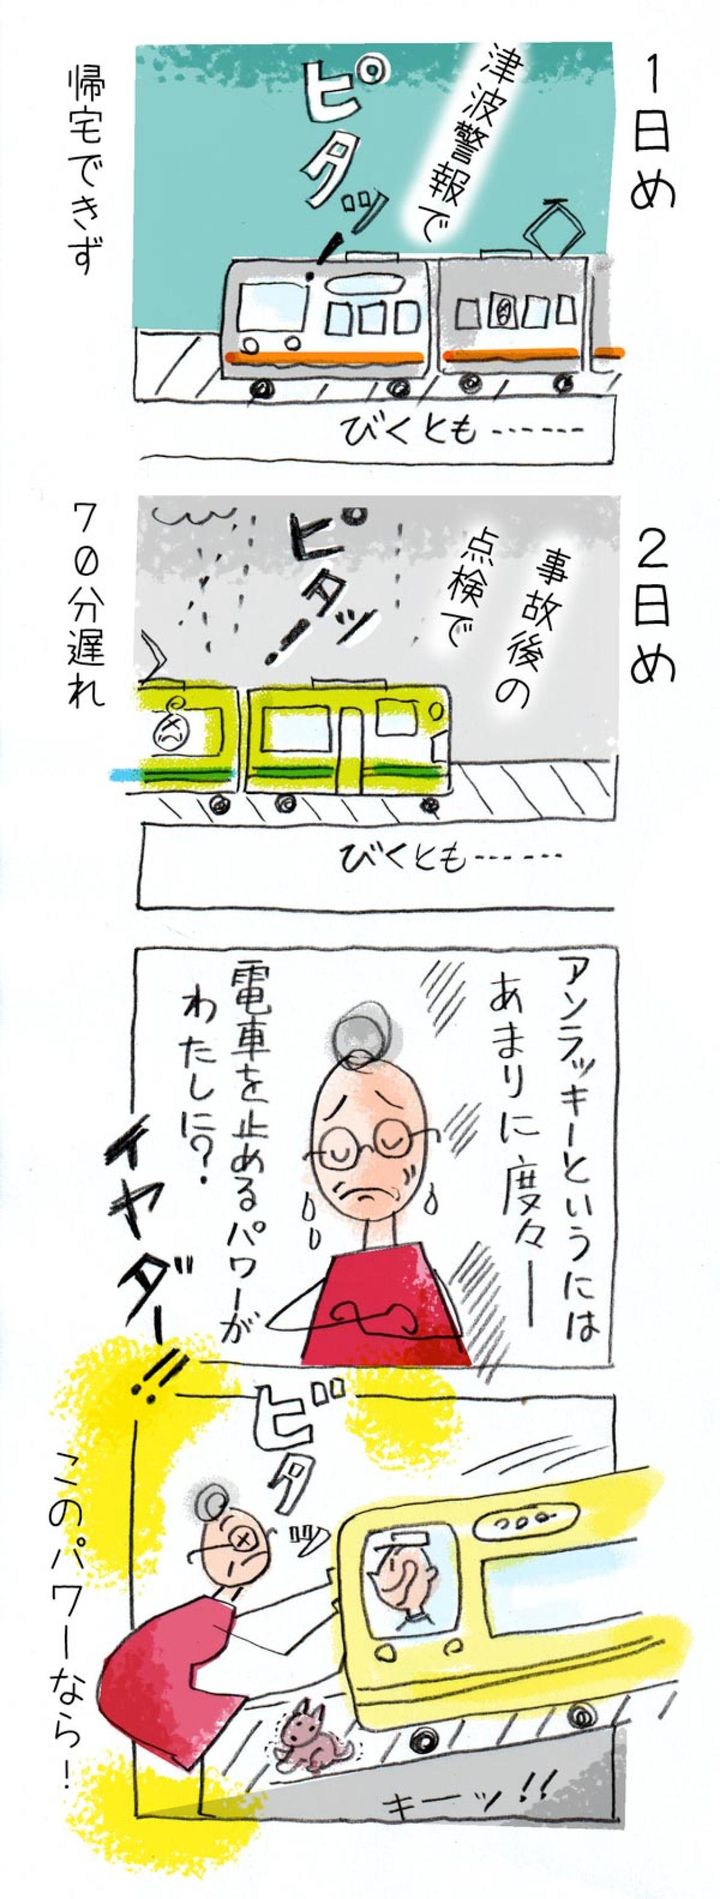 1日め
津波警報で
ピタッ!
帰宅できず
びくとも……
2日め
事故後の
点検で
ピタッー!
70分遅れ
びくとも……
アンラッキーというには
あまりに度々ー
電車を止めるパワーが
わたしに?
イヤダー!!
ビタッ
このパワーなら!
キーッ!!